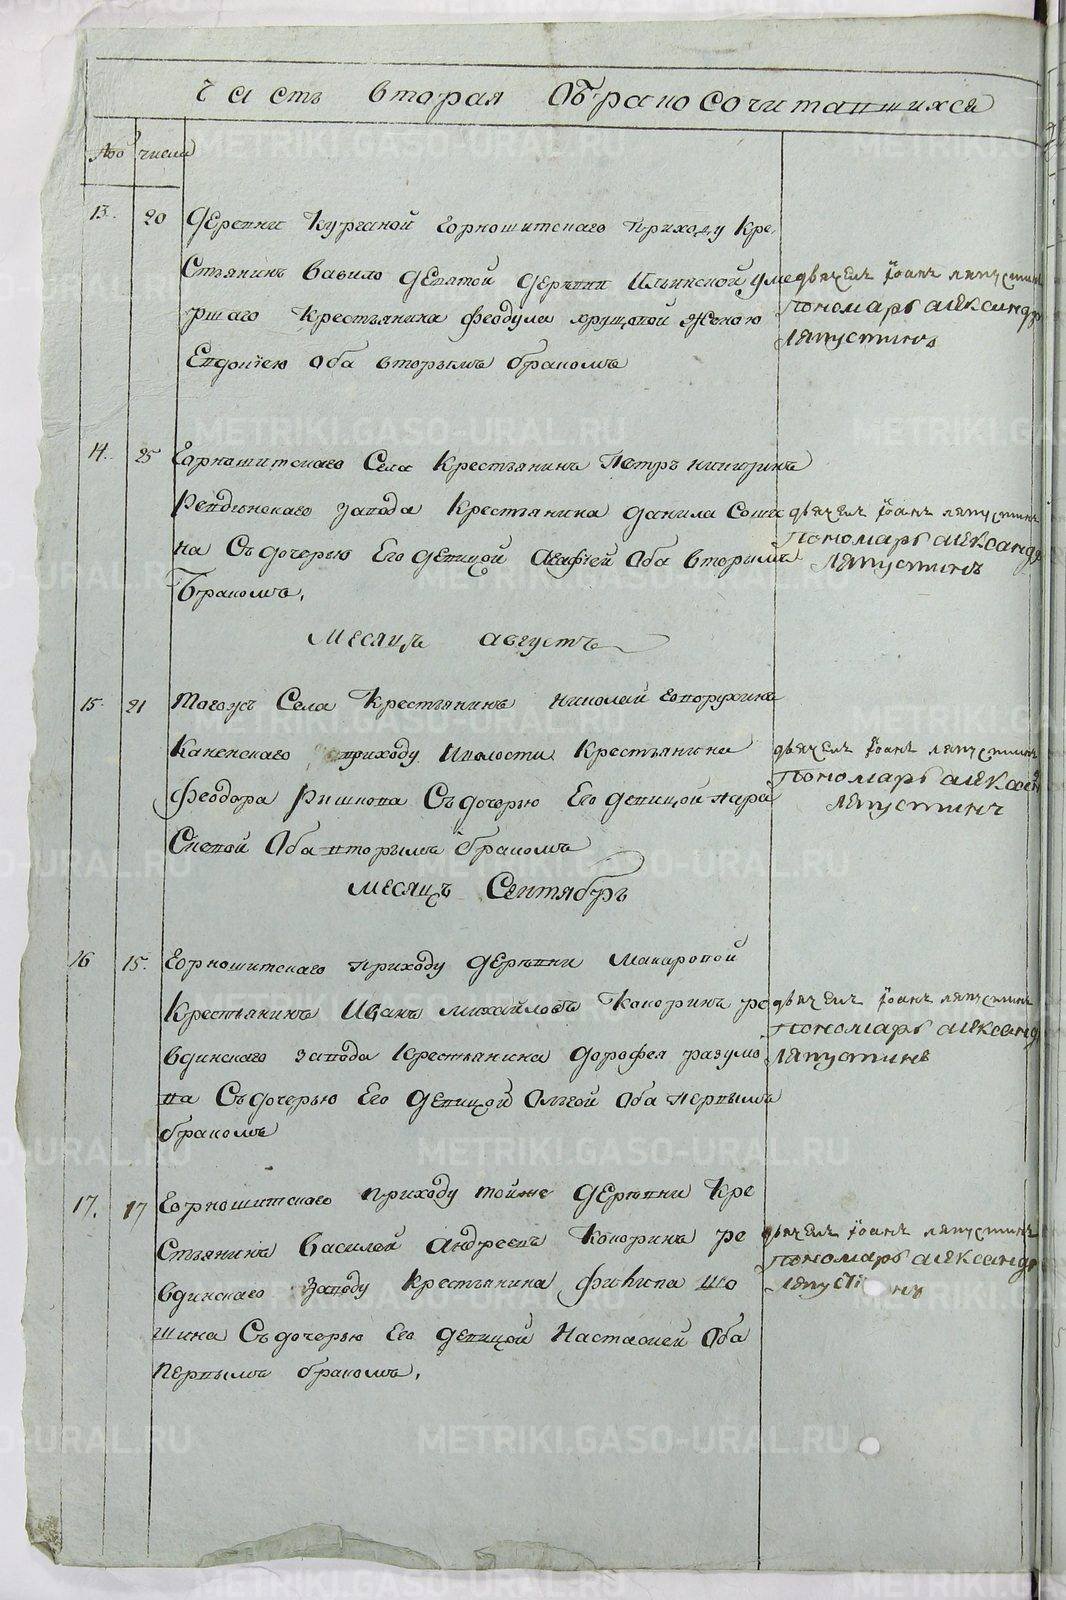 Часть вторая О Бракосочитавшихся
числа
13. 20 Деревни Кургановой Горнощитскаго приходу Кре
стьянинъ Вавило Девятой Деревни Ильинской уме
ршаго крестьянина Феодула Хрущовой женою
Евдокiею Оба вторымъ бракомъ
дьячекъ Iоанъ Ляпустинъ
Пономарь александръ
Ляпустинъ
14. 25 Горнощитскаго Села Крестьянинъ Петръ
Ревдинскаго завода Крестьянина данила
на Съ дочерью Его девицой Агафiей Оба вторымъ
Бракомъ.
дьячекъ Iоанъ Ляпустинъ
Пономарь александръ
Ляпустинъ
Месяцъ августъ
15. 21 Тогожъ Села Крестьянинъ Николай
приходу Иволости Крестьянина
Феодора Рышкова Съ дочерью Его девицой пара
Скевой Оба вторымъ бракомъ
дьячекъ Iоанъ Ляпустинъ
Пономарь алексан
Ляпустинъ
месяцъ Сентябрь
16 15. Горнощитскаго приходу деревни Макаровой
Крестьянинъ Иванъ михайловъ Кокоринъ ре
вдинскаго завода Крестьянина дорофея разумо
ва Съ дочерью Его девицой Ольгой Оба первымъ
бракомъ
дьячекъ Iоанъ Ляпустинъ
Пономарь александ
Ляпустинъ
17. 17 Горнощитскаго приходу тойже деревни Кре
стьянинъ Василей андреевъ Кокоринъ ре
вдинскаго заводу Крестьянина филипа шо
шина Съ дочерью Его девицой Настасiей Оба
первымъ бракомъ.
дьячекъ Iоанъ Ляпустинъ
Пономарь александръ
METRIKI.GASO-URAL.RU